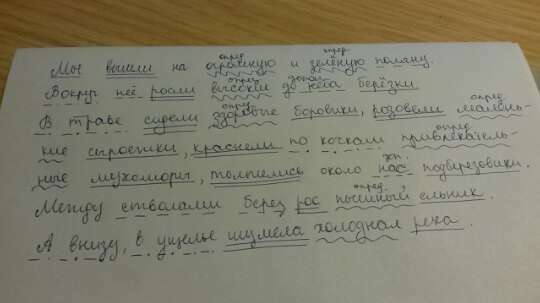 опред. опред.
Мы вышли на огромную и зелёную поляну.
опред. допол.
Вокруг неё росли высокие до неба берёзки.
опред. опред.
В траве сидели здоровые боровики, розовели малень-
опред.
кие сыроежки, краснели по кочкам привлекатель-
доп.
ные мухоморы, толпились около нас подберезовики.
опред.
Между стволами берез рос пышный ельник.
А внизу, в ущелье шумела холодная река.